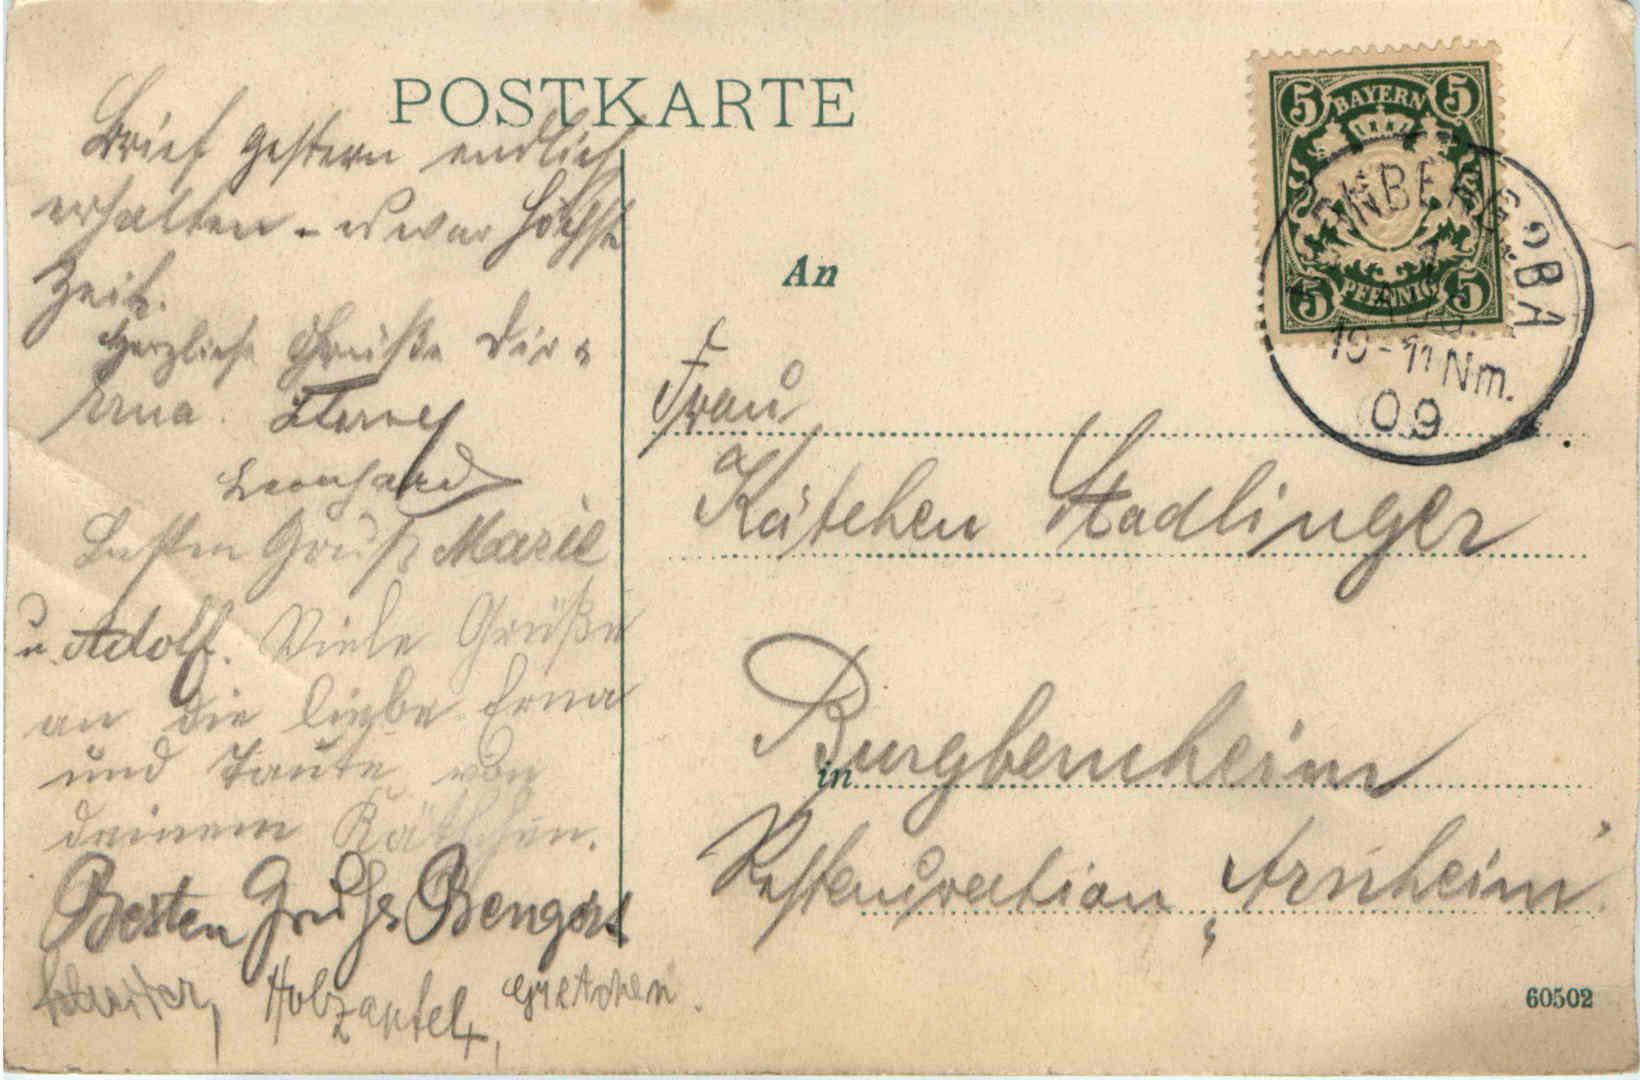 POSTKARTE
Brief gestern endlich
erhalten - es war höchste
Zeit.
Herzliche Grüße Dir u
Erna.
Leonhard
Besten Gruß Marie
u. Adolf. Viele Grüße
an die liebe Erna
und Tante von
deinem Käthchen.
Besten Gruß
Holz
apfel, Gretchen.
5 BAYERN 5
5 PFENNIG 5
NBERG 2 BA
10-11 Nm.
09
An
Frau
Kätchen Stadlinger
in Burgbernheim
Restauration Arnheim.
60502